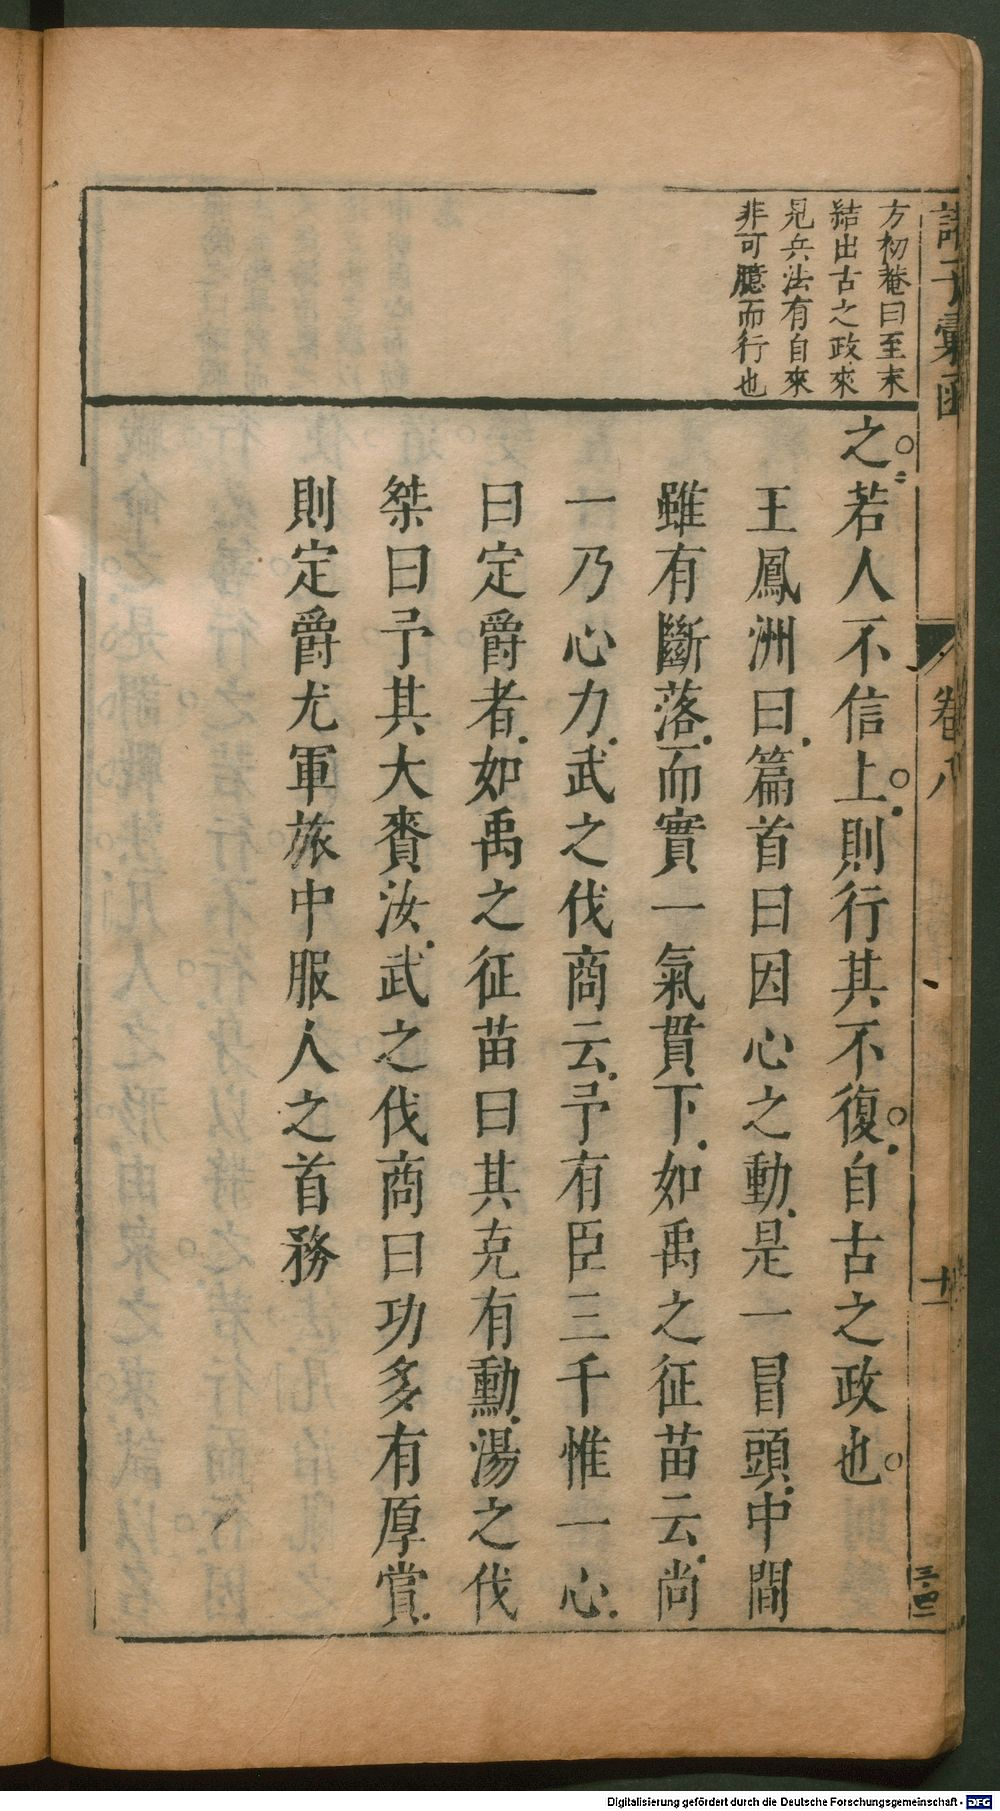 諸子彙函
卷八
十一
方初菴曰至末
結出古之政來
見兵法有自來
非可臆而行也
之若人不信上則行其不復自古之政也
王鳳洲曰篇首曰因心之動是一冒頭中間
雖有斷落而實一氣貫下如禹之征苗云尚
一乃心力武之伐商云予有臣三千惟一心
曰定爵者如禹之征苗曰其克有勳湯之伐
桀曰予其大賚汝武之伐商曰功多有厚賞
則定爵尤軍旅中服人之首務
Digitalisierung gefördert durch die Deutsche Forschungsgemeinschaft - DFG